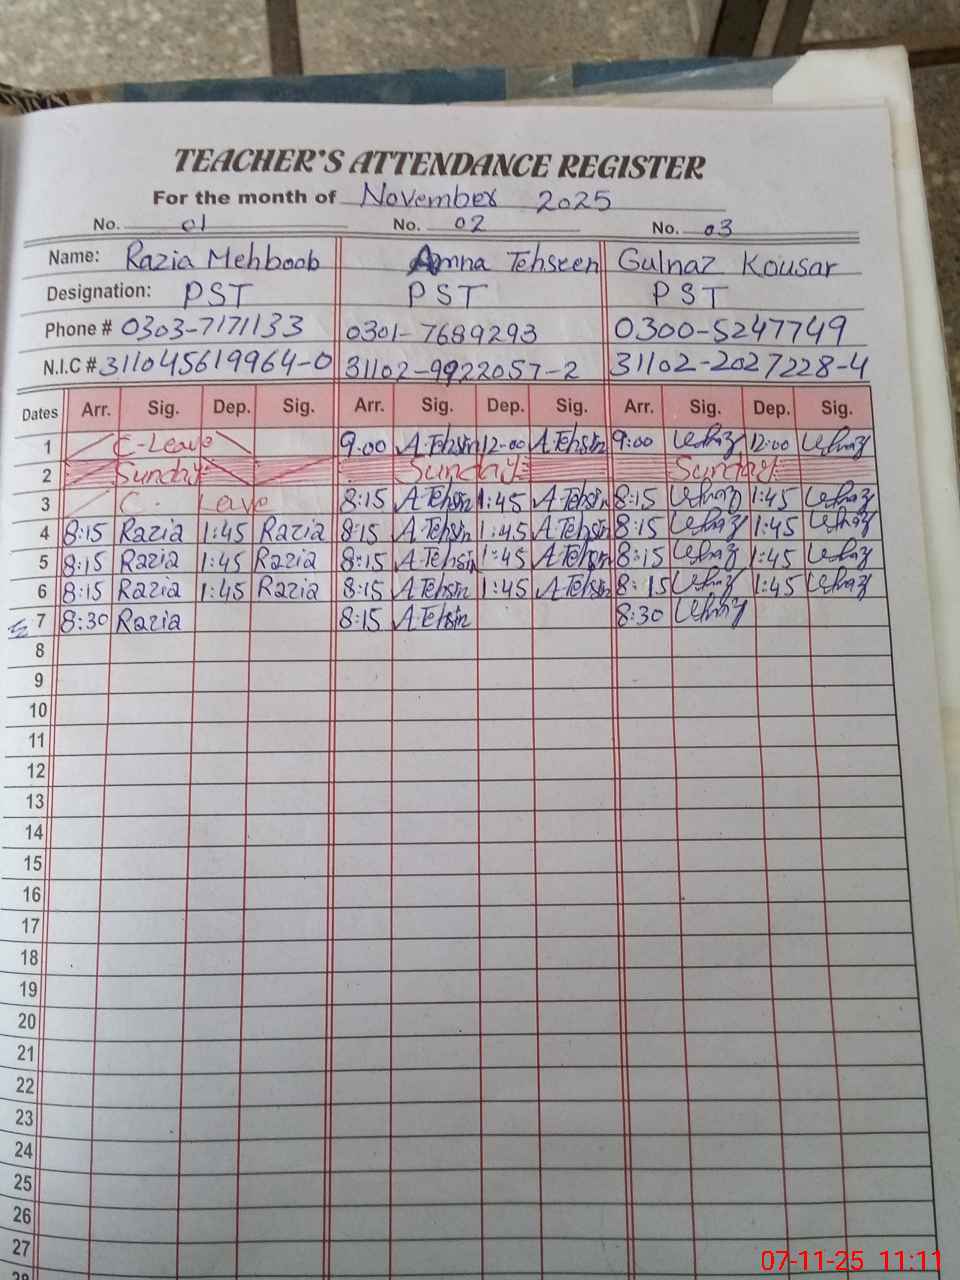 TEACHER'S ATTENDANCE REGISTER
For the month of November 2025
No. 01 No. 02 No. 03
Name: Razia Mehboob Amna Tehseen Gulnaz Kousar
Designation: PST PST PST
Phone # 0303-7171133 0301-7689293 0300-5247749
N.I.C # 311045619964-0 31102-9922057-2 31102-2027228-4
Dates Arr. Sig. Dep. Sig. Arr. Sig. Dep. Sig. Arr. Sig. Dep. Sig.
1 C-Leave 9:00 A.Tehsin 12:00 A.Tehsin 9:00 12:00
2 Sunday Sunday Sunday
3 C. Leave 8:15 A.Tehsin 1:45 A.Tehsin 8:15 1:45
4 8:15 Razia 1:45 Razia 8:15 A.Tehsin 1:45 A.Tehsin 8:15 1:45
5 8:15 Razia 1:45 Razia 8:15 A.Tehsin 1:45 A.Tehsin 8:15 1:45
6 8:15 Razia 1:45 Razia 8:15 A.Tehsin 1:45 A.Tehsin 8:15 1:45
7 8:30 Razia 8:15 A.Tehsin 8:30
8
9
10
11
12
13
14
15
16
17
18
19
20
21
22
23
24
25
26
27
28
07-11-25 11:11